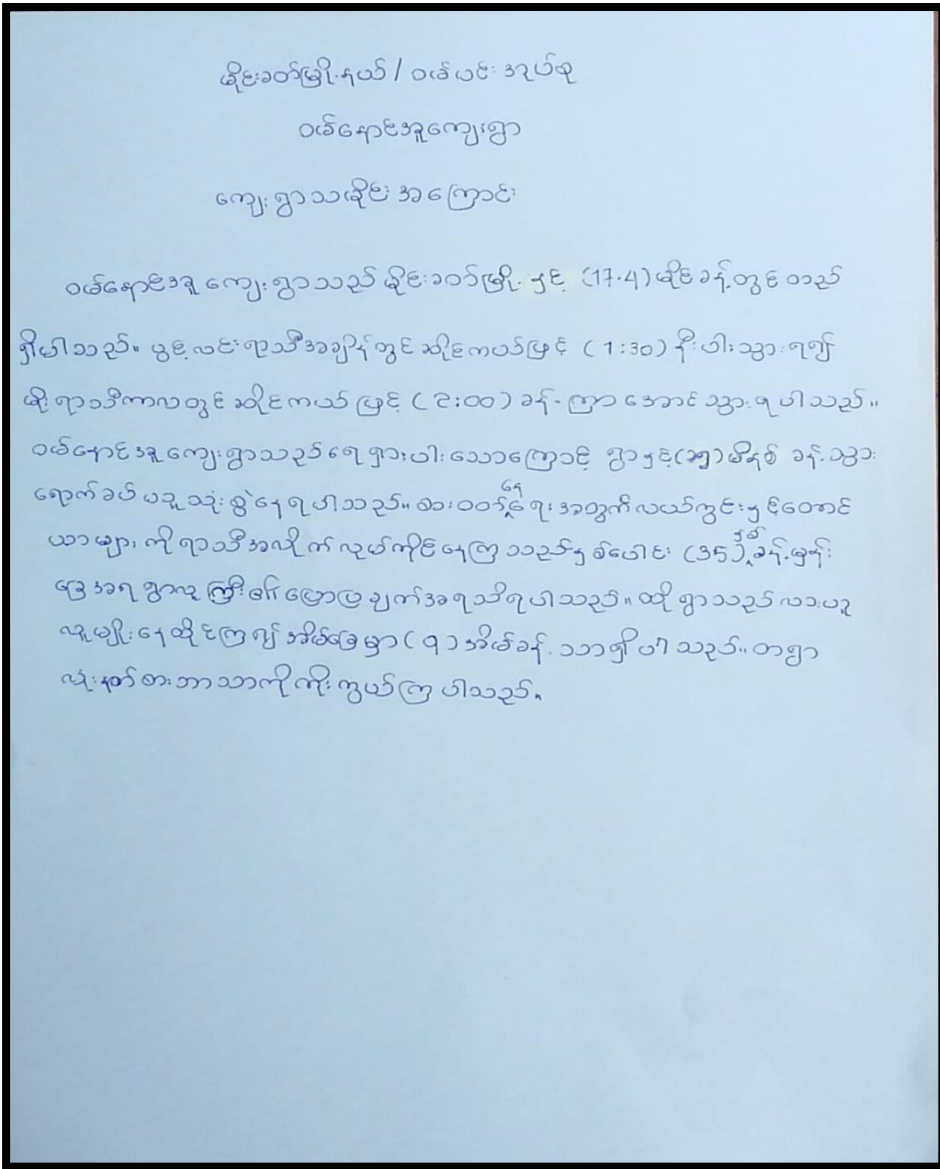 မိုင်းခတ်မြို့နယ် / ဝမ်ပင်းအုပ်စု
ဝမ်နောင်အူကျေးရွာ
ကျေးရွာသမိုင်းအကြောင်း
ဝမ်နောင်အူကျေးရွာသည် မိုင်းခတ်မြို့နှင့် (17.4) မိုင်ခန့်တွင် တည်
ရှိပါသည်။ ပွင့်လင်းရာသီအချိန်တွင် ဆိုင်ကယ်ဖြင့် (1:30) နီးပါးသွားရ၍
မိုးရာသီကာလတွင် ဆိုင်ကယ်ဖြင့် (2:00) ခန့်ကြာအောင် သွားရပါသည်။
ဝမ်နောင်အူကျေးရွာသည် ရေရှားပါးသောကြောင့် ရွာနှင့် (၁၅) မိနစ်ခန့်သွား
ရောက်ခပ်ယူသုံးစွဲနေရပါသည်။ စားဝတ်နေရေးအတွက် လယ်ကွင်းနှင့်တောင်
ယာများကို ရာသီအလိုက်လုပ်ကိုင်နေကြသည်မှာ နှစ်ပေါင်း (35) နှစ်ခန့်မှန်း
ခြေအရ ရွာလူကြီး၏ ပြောပြချက်အရသိရပါသည်။ ထိုရွာသည် လားဟူ
လူမျိုးနေထိုင်ကြ၍ အိမ်ခြေမှာ (၇) အိမ်ခန့်သာရှိပါသည်။ တရွာ
လုံးနတ်စားဘာသာကိုကိုးကွယ်ကြပါသည်။